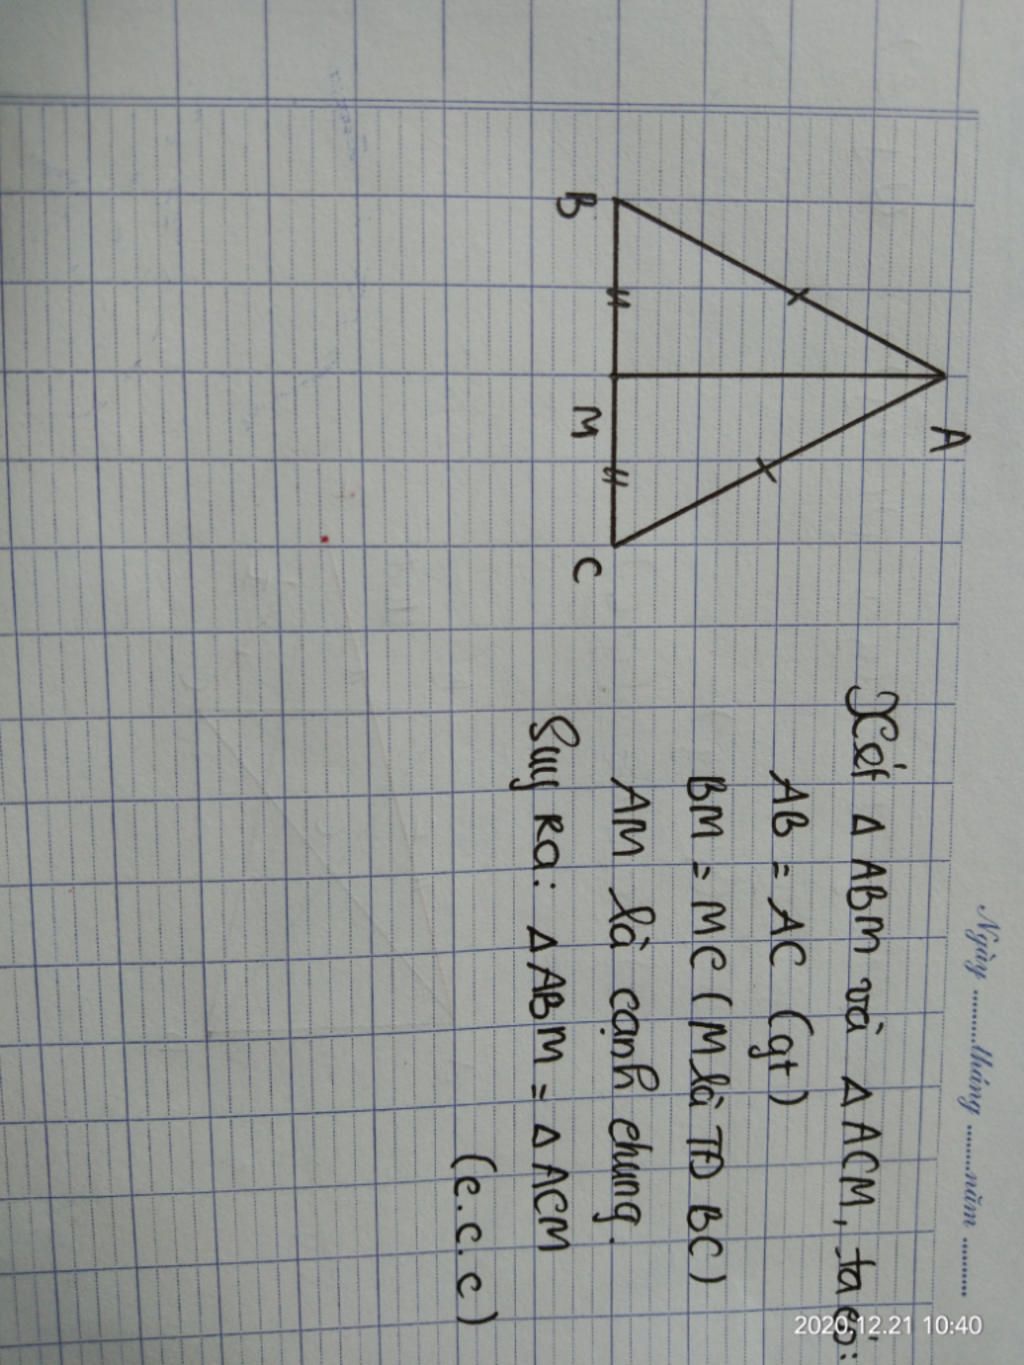 Ngày ..........tháng ..........năm ..........
A
B
M
C
Xét Δ ABM và Δ ACM, ta có:
AB = AC (gt)
BM = MC (M là TĐ BC)
AM là cạnh chung.
Suy ra: Δ ABM = Δ ACM
(c.c.c)
2020.12.21 10:40